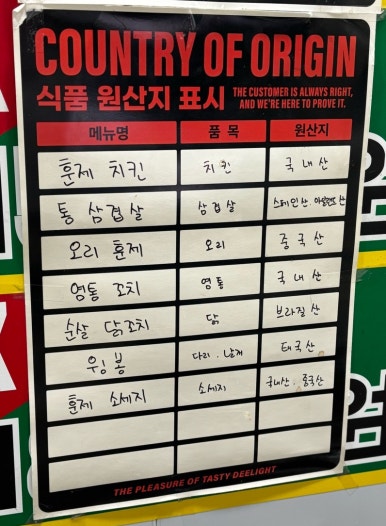 COUNTRY OF ORIGIN
식품 원산지 표시 THE CUSTOMER IS ALWAYS RIGHT,
AND WE'RE HERE TO PROVE IT.
메뉴명 품 목 원산지
훈제 치킨 치킨 국내산
통 삼겹살 삼겹살 스페인산. 아일랜드산
오리 훈제 오리 중국산
영통 꼬치 영통 국내산
순살 닭꼬치 닭 브라질산
윙봉 다리. 날개 태국산
훈제 소세지 소세지 국내산. 중국산
THE PLEASURE OF TASTY DEELIGHT